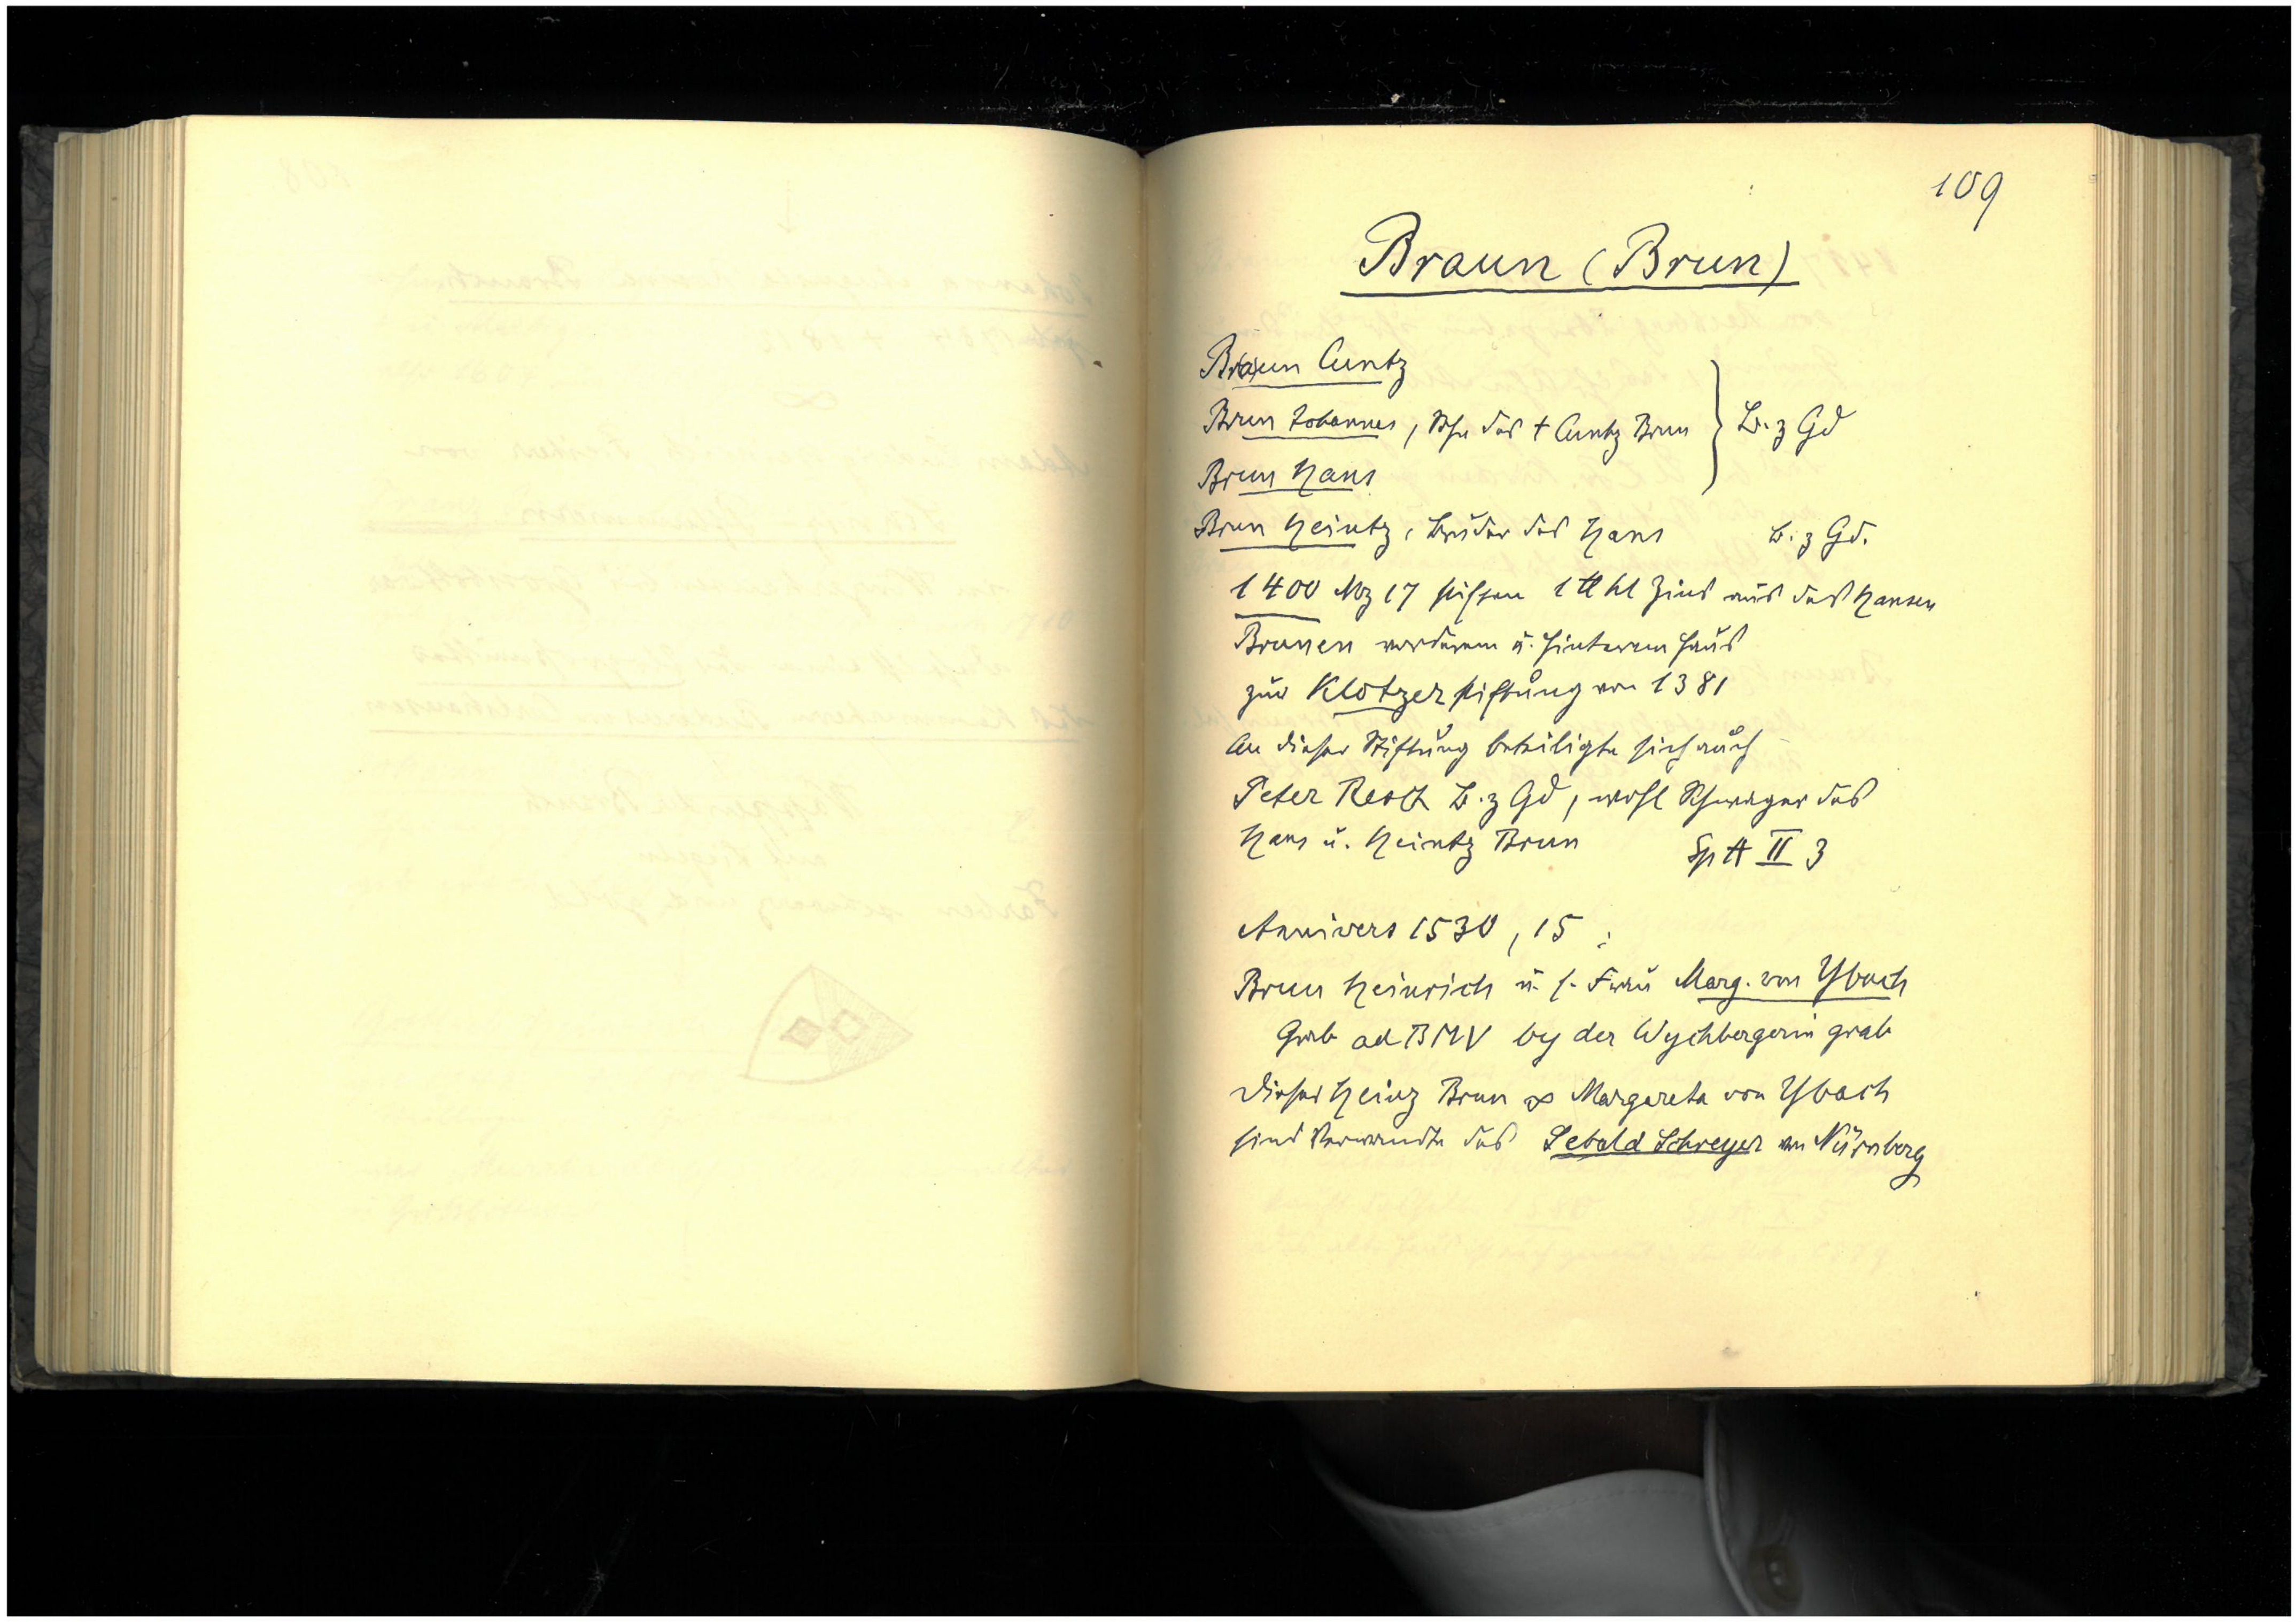 109
Braun (Brun)
Br(a)un Cuntz
Brun Johannes, Sohn des † Cuntz Brun } B. z Gd
Brun Hans
Brun Heintz, Bruder des Hans B. z Gd.
1400 Mz 17 stiften 1 ℔ hl Zins aus des Hansen
Brunen vorderem u. hinterem Haus
zur Klotzerstiftung von 1381
An dieser Stiftung beteiligte sich auch
Peter B. z Gd, wohl Schwager des
Hans u. Heintz Brun Sp A II 3
Annivers 1530, 15 :
Brun Heinrich u. s. Frau Marg. von Ybach
Grab ad BMV by der Wychbergerin grab
Dieser Heinz Brun ∞ Margareta von Ybach
sind Verwandte des Sebald Schreyer von Nürnberg